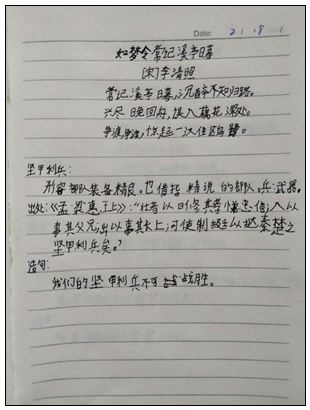 Date: 21.8.1
如梦令常记溪亭日暮
[宋]李清照
常记溪亭日暮,沉醉不知归路。
兴尽晚回舟,误入藕花深处。
争渡,争渡,惊起一滩鸥鹭。
坚甲利兵:
形容部队装备精良。也借指精锐的部队,兵:武器。
出处:《孟·梁惠王上》:"壮者以日修其孝悌忠信,入以
事其父兄,出以事其长上,可使制挺以挞秦楚之
坚甲利兵矣。"
造句:
我们的坚甲利兵不可战胜。